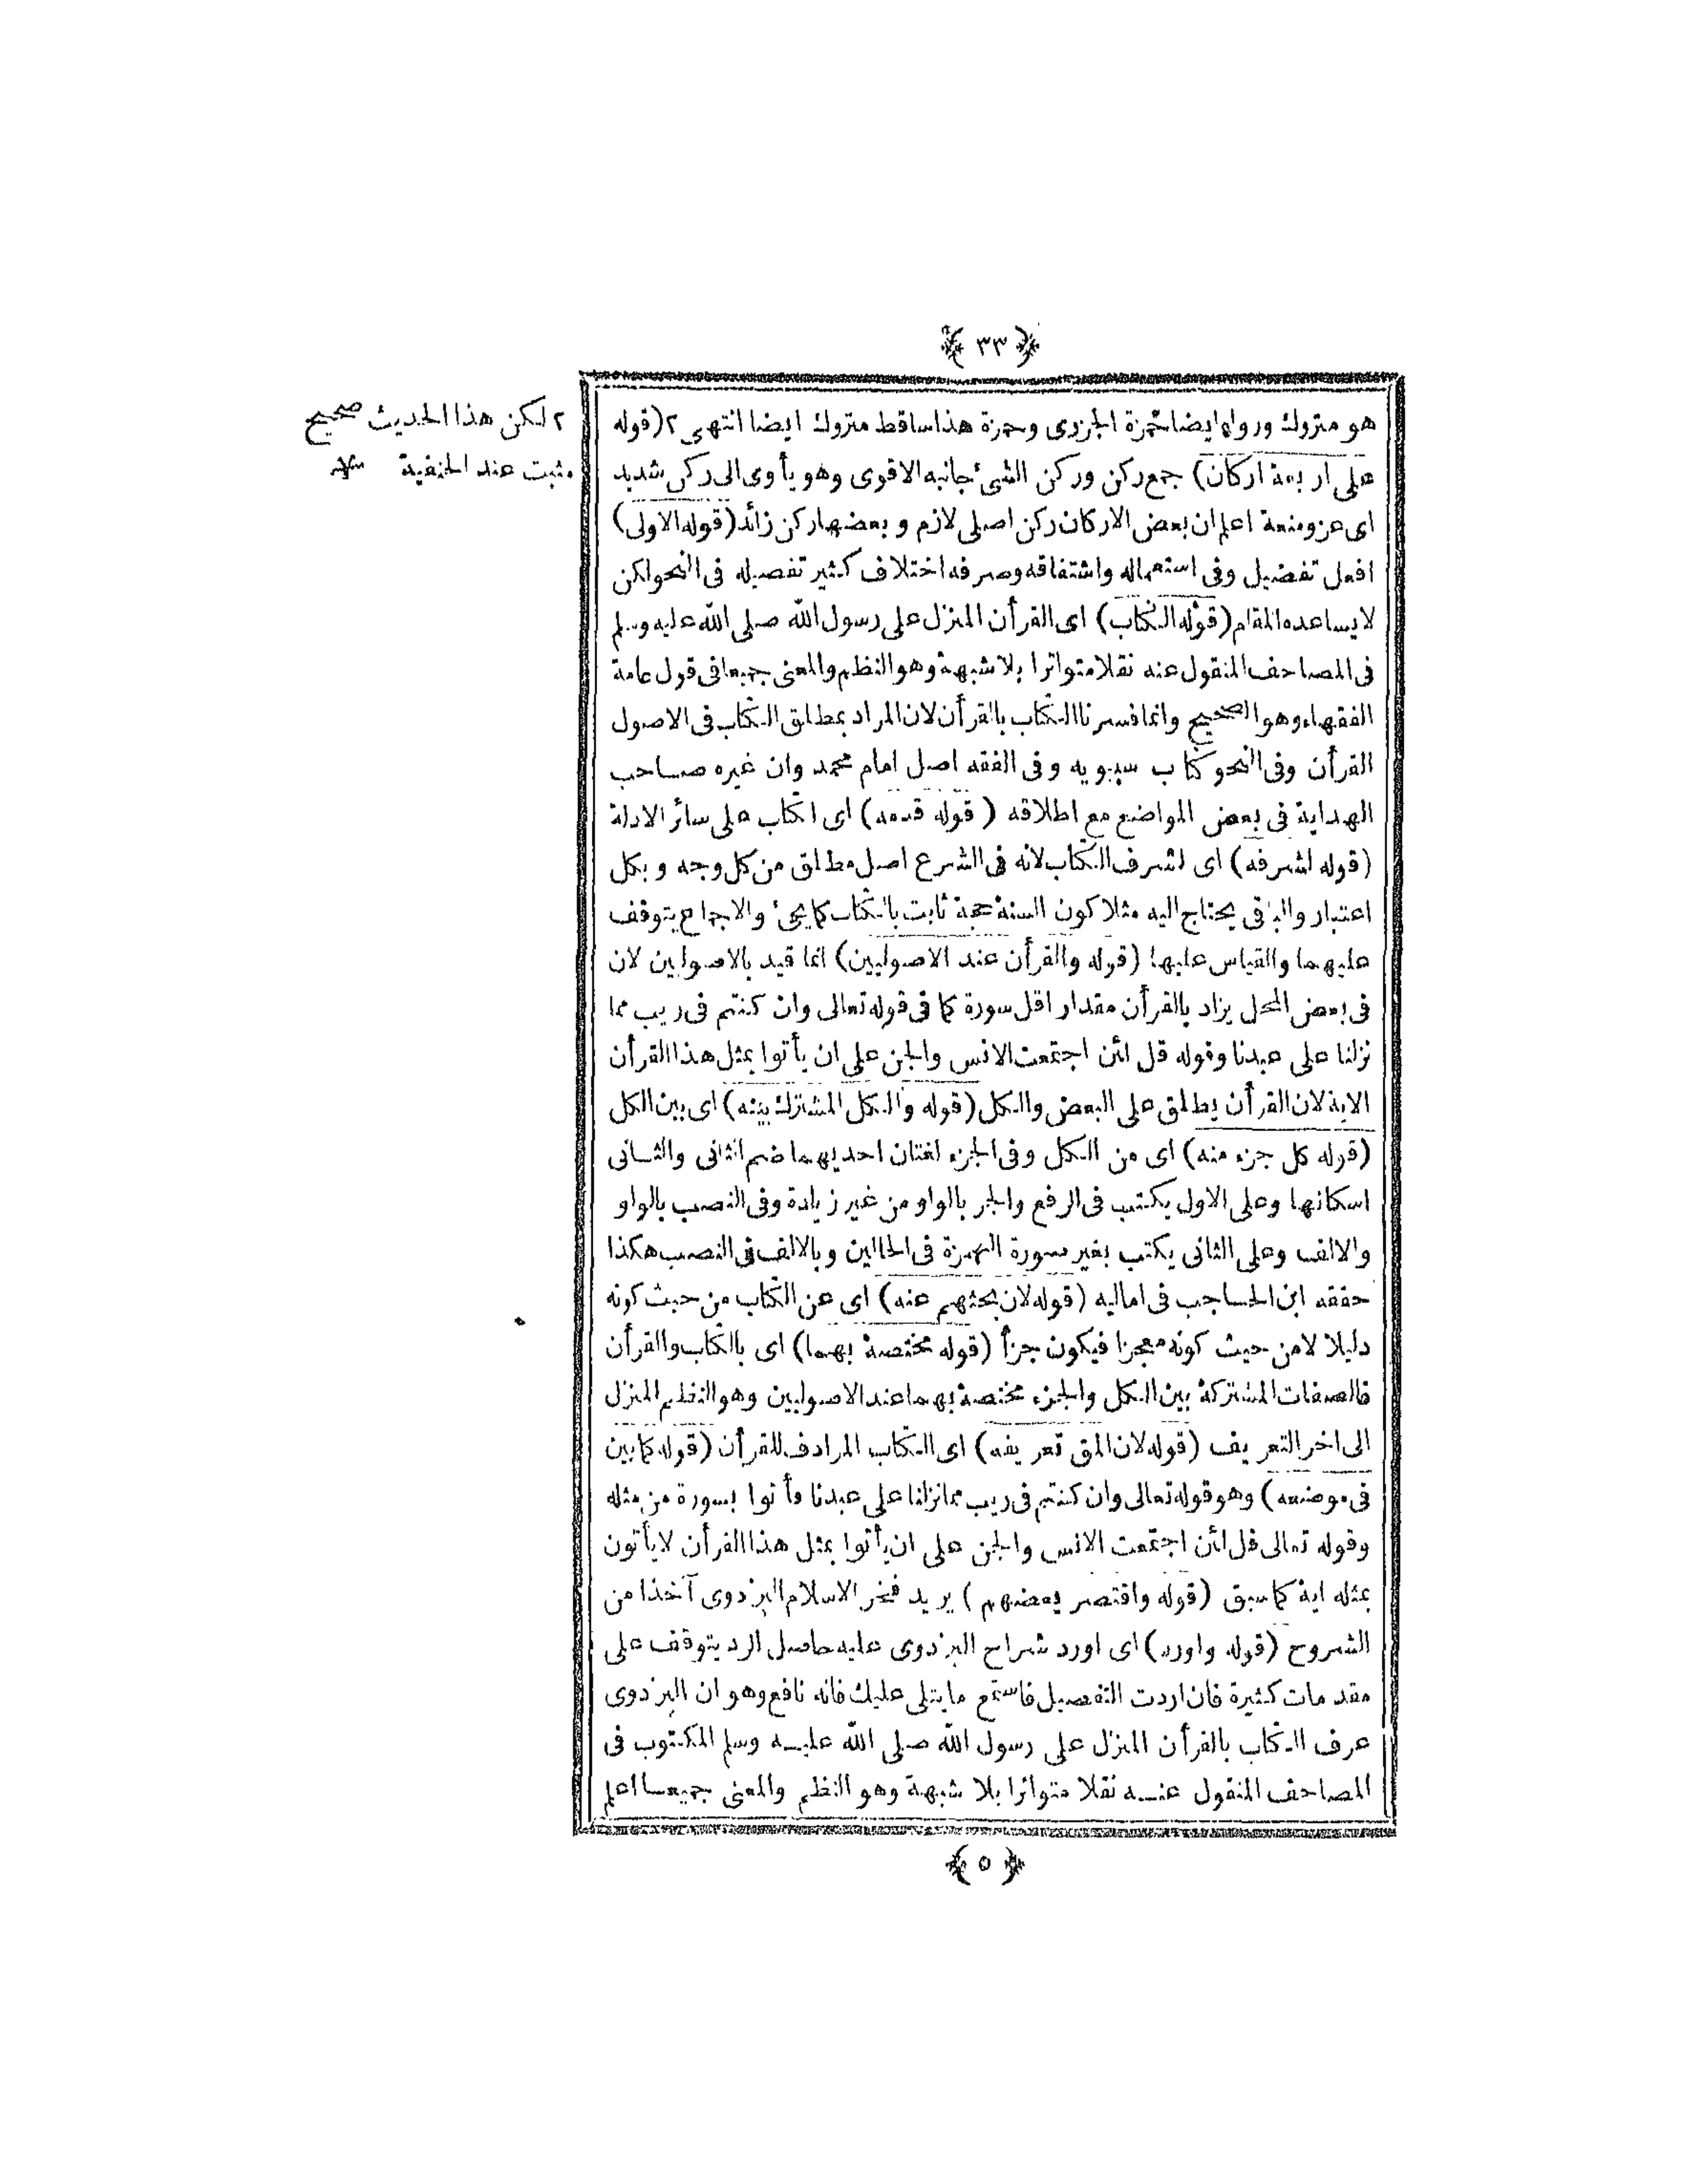 ﴿ ٣٣ ﴾
هو متروك ورواه ايضا حمزة الجزرى وحمزة هذا ساقط متروك ايضا انتهى ٢ (قوله
على اربعة اركان) جمع ركن وركن الشئ جانبه الاقوى وهو يأوى الى ركن شديد
اى عز ومنعة اعلم ان بعض الاركان ركن اصلى لازم و بعضها ركن زائد (قوله الاولى)
افعل تفضيل وفى استعماله واشتقاقه وصرفه اختلاف كثير تفصيله فى النحو لكن
لا يساعده المقام (قوله الكتاب) اى القرأن المنزل على رسول الله صلى الله عليه وسلم
فى المصاحف المنقول عنه نقلا متواترا بلا شبهة وهو النظم والمعنى جميعا فى قول عامة
الفقهاء وهو الصحيح وانما فسرنا الكتاب بالقرأن لان المراد بمطلق الكتاب فى الاصول
القرأن وفى النحو كتاب سيبويه وفى الفقه اصل امام محمد وان غيره صاحب
الهداية فى بعض المواضع مع اطلاقه (قوله قدمه) اى الكتاب على سائر الادلة
(قوله لشرفه) اى لشرف الكتاب لانه فى الشرع اصل مطلق من كل وجه و بكل
اعتبار والباقى يحتاج اليه مثلا كون السنة حجة ثابت بالكتاب كما يجئ والاجماع يتوقف
عليهما والقياس عليها (قوله والقرأن عند الاصوليين) انما قيد بالاصوليين لان
فى بعض المحل يراد بالقرأن مقدار اقل سورة كما فى قوله تعالى وان كنتم فى ريب مما
نزلنا على عبدنا وقوله قل لئن اجتمعت الانس والجن على ان يأتوا بمثل هذا القرأن
الاية لان القرأن يطلق على البعض والكل (قوله والكل المشترك بينه) اى بين الكل
(قوله كل جزء منه) اى من الكل وفى الجزء لغتان احديهما ضم الثانى والثانى
اسكانها وعلى الاول يكتب فى الرفع والجر بالواو من غير زيادة وفى النصب بالواو
والالف وعلى الثانى يكتب بغير صورة الهمزة فى الحالين وبالالف فى النصب هكذا
حققه ابن الحاجب فى اماليه (قوله لان بحثهم عنه) اى عن الكتاب من حيث كونه
دليلا لا من حيث كونه معجزا فيكون جزأ (قوله مختصة بهما) اى بالكتاب والقرأن
فالصفات المشتركة بين الكل والجزء مختصة بهما عند الاصوليين وهو النظم المنزل
الى اخر التعريف (قوله لان المق تعريفه) اى الكتاب المرادف للقرأن (قوله كما بين
فى موضعه) وهو قوله تعالى وان كنتم فى ريب مما نزلنا على عبدنا فأتوا بسورة من مثله
وقوله تعالى قل لئن اجتمعت الانس والجن على ان يأتوا بمثل هذا القرأن لا يأتون
بمثله اية كما سبق (قوله واقتصر بعضهم) يريد فخر الاسلام البزدوى آخذا من
الشروح (قوله واورد) اى اورد شراح البزدوى عليه حاصل الرد يتوقف على
مقدمات كثيرة فان اردت التفصيل فاستمع ما يتلى عليك فانه نافع وهو ان البزدوى
عرف الكتاب بالقرأن المنزل على رسول الله صلى الله عليه وسلم المكتوب فى
المصاحف المنقول عنه نقلا متواترا بلا شبهة وهو النظم والمعنى جميعا اعلم
﴿ ٥ ﴾
٢ لكن هذا الحديث صحيح
مثبت عند الحنفية